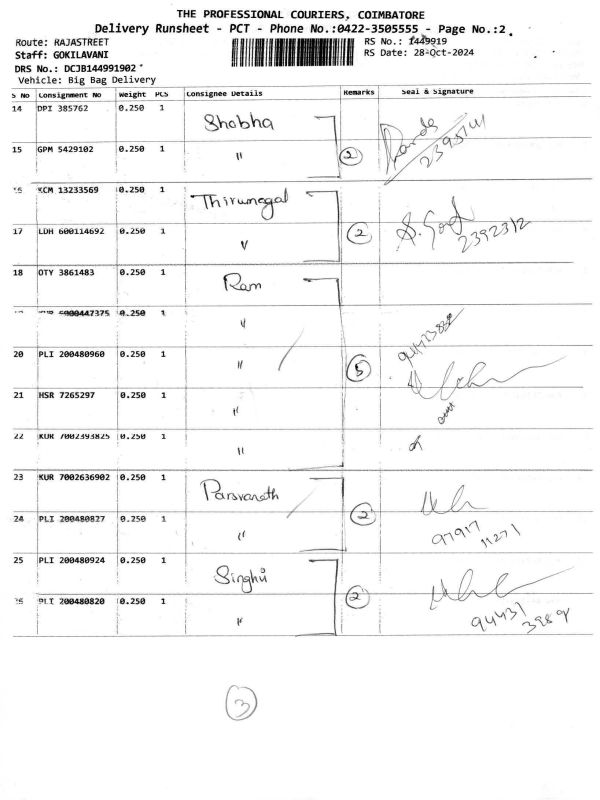 THE PROFESSIONAL COURIERS, COIMBATORE
Delivery Runsheet - PCT - Phone No.:0422-3505555 - Page No.:2
Route: RAJASTREET
RS No.: 1449919
Staff: GOKILAVANI
RS Date: 28-Oct-2024
DRS No.: DCJB144991902
Vehicle: Big Bag Delivery
S No Consignment No Weight PCS Consignee Details Remarks Seal & Signature
14 DPI 385762 0.250 1 Shobha
15 GPM 5429102 0.250 1 〃 2
KCM 13233569 0.250 1 Thirumagal
17 LDH 600114692 0.250 1 〃 2 2392312
18 OTY 3861483 0.250 1 Ram
0.250 1 〃
20 PLI 200480960 0.250 1 〃 5
21 HSR 7265297 0.250 1 〃
22 KUR 7002393825 0.250 1 〃
23 KUR 7002636902 0.250 1 Parsvanath
24 PLI 200480827 0.250 1 〃 2 97917
11271
25 PLI 200480924 0.250 1 Singhvi
PLI 200480820 0.250 1 〃 2 94431
3989
3